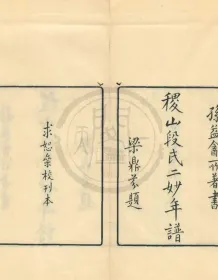 孫益龕所著書
稷山段氏二妙年譜
梁鼎芬題
求恕齋校刊本